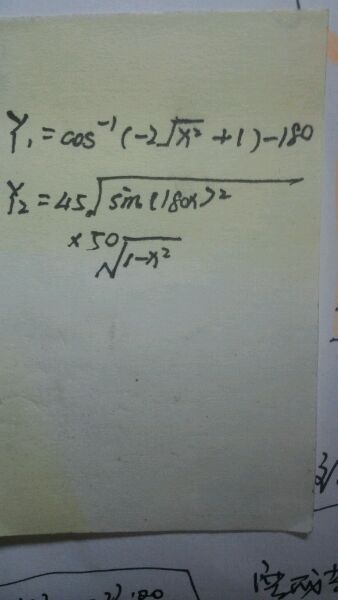 Y₁ = cos⁻¹(-2√x² + 1) - 180
Y₂ = 45√sin(180x)²
× 50√1-x²